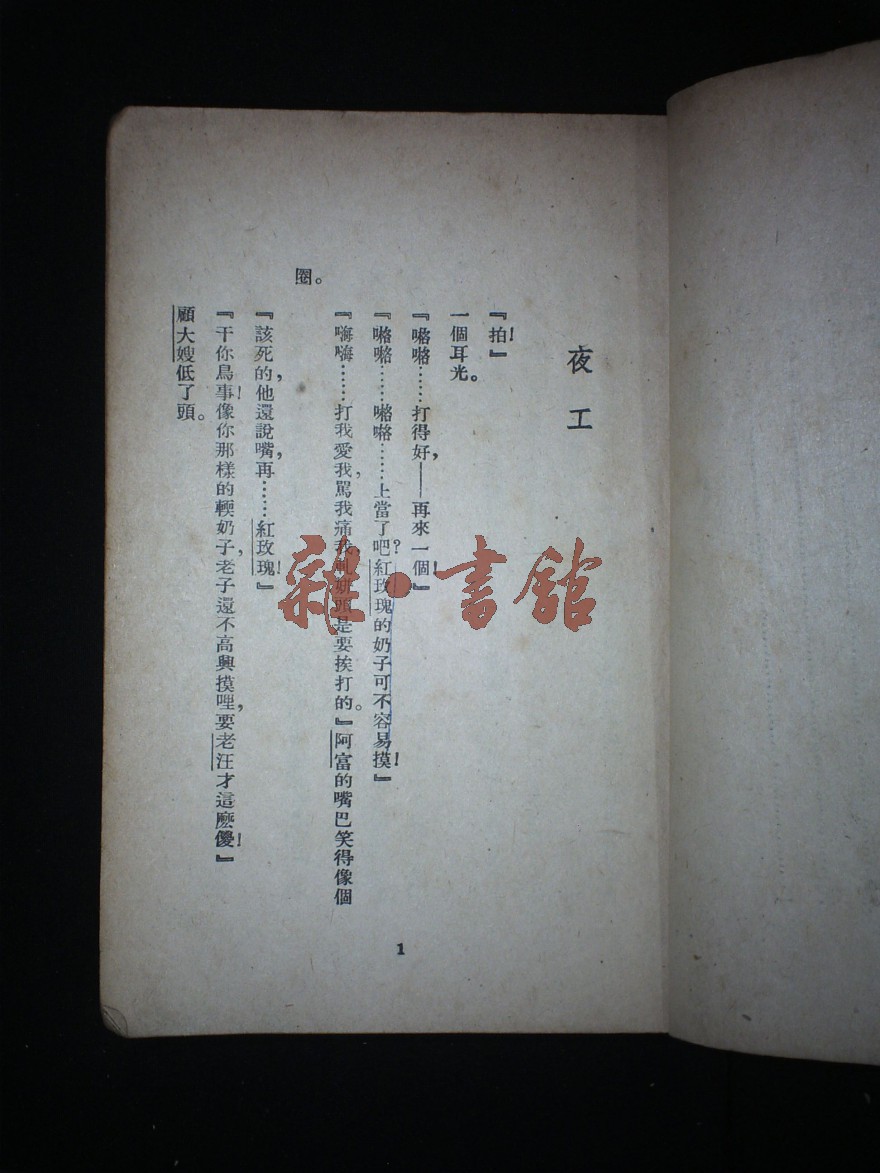 夜工
『拍！』
一個耳光。
『咯咯……打得好，——再來一個！』
『咯咯……咯咯……上當了吧？紅玫瑰的奶子可不容易摸！』
『嗨嗨……打我愛我，罵我痛我，軋姘頭是要挨打的。』阿富的嘴巴笑得像個
圈。
『該死的，他還說嘴，再……紅玫瑰！』
『干你鳥事！像你那樣的輭奶子，老子還不高興摸哩，要老汪才這麽儍！』
顧大嫂低了頭。
1
雜·書館